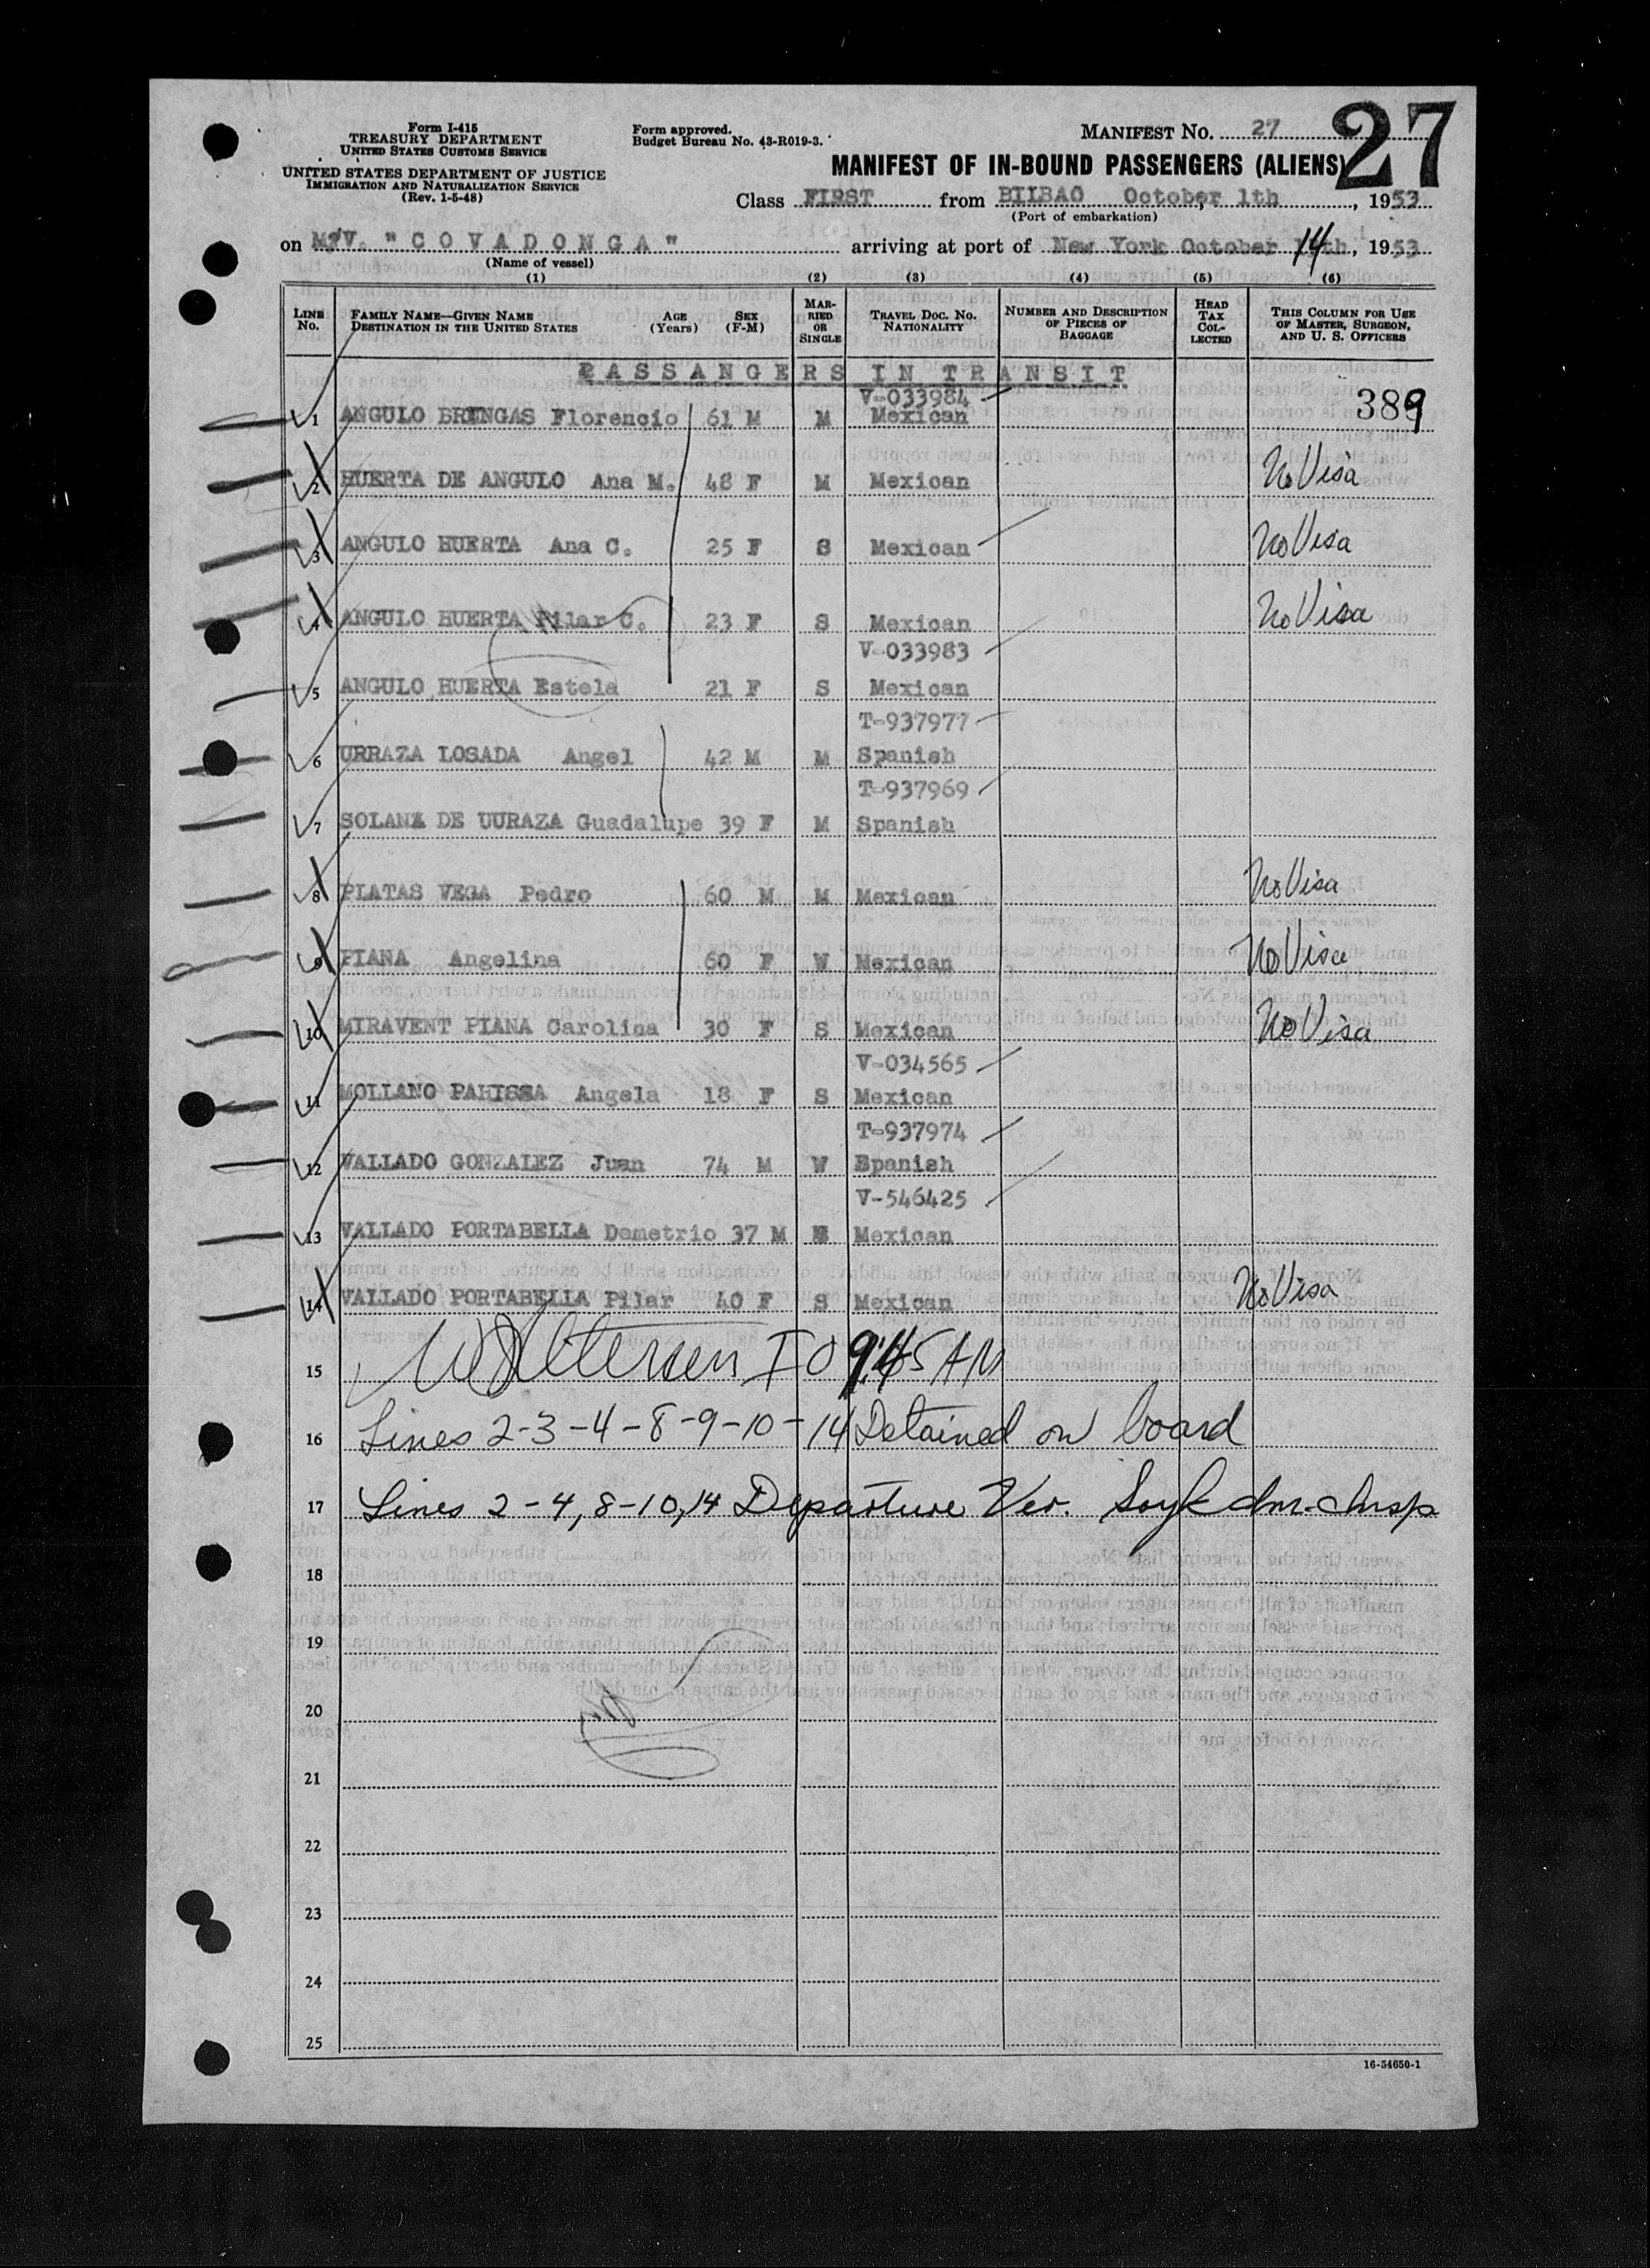 Form I-415
TREASURY DEPARTMENT
UNITED STATES CUSTOMS SERVICE
UNITED STATES DEPARTMENT OF JUSTICE
IMMIGRATION AND NATURALIZATION SERVICE
(Rev. 1-5-48)
Form approved.
Budget Bureau No. 43-R019-3.
MANIFEST NO. 27
27
MANIFEST OF IN-BOUND PASSENGERS (ALIENS)
Class FIRST from BILBAO October 1th, 1953
(Port of embarkation)
on M/V. "COVADONGA" arriving at port of New York October 14th, 1953
(Name of vessel)
(1) (2) (3) (4) (5) (6)
LINE No. FAMILY NAME—GIVEN NAME DESTINATION IN THE UNITED STATES AGE (Years) SEX (F-M) MARRIED OR SINGLE TRAVEL DOC. NO. NATIONALITY NUMBER AND DESCRIPTION OF PIECES OF BAGGAGE HEAD TAX COLLECTED THIS COLUMN FOR USE OF MASTER, SURGEON, AND U. S. OFFICERS
PASSANGERS IN TRANSIT
V-033984
389
1 ANGULO BRENGAS Florencio 61 M M Mexican
2 HUERTA DE ANGULO Ana M. 48 F M Mexican No Visa
3 ANGULO HUERTA Ana C. 25 F S Mexican No Visa
4 ANGULO HUERTA Pilar C. 23 F S Mexican No Visa
V-033983
5 ANGULO HUERTA Estela 21 F S Mexican
T-937977
6 URRAZA LOSADA Angel 42 M M Spanish
T-937969
7 SOLANA DE UURAZA Guadalupe 39 F M Spanish
8 PLATAS VEGA Pedro 60 M M Mexican No Visa
9 PIANA Angelina 60 F W Mexican No Visa
10 MIRAVENT PIANA Carolina 30 F S Mexican No Visa
V-034565
11 MOLLANO PAHISSA Angela 18 F S Mexican
T-937974
12 VALLADO GONZALEZ Juan 74 M W Spanish
V-546425
13 VALLADO PORTABELLA Demetrio 37 M Mexican
14 VALLADO PORTABELLA Pilar 40 F S Mexican No Visa
15 I O 9:45 AM
16 Lines 2-3-4-8-9-10-14 Detained on board
17 Lines 2-4, 8-10, 14 Departure Ver.
18
19
20
21
22
23
24
25
16-54650-1